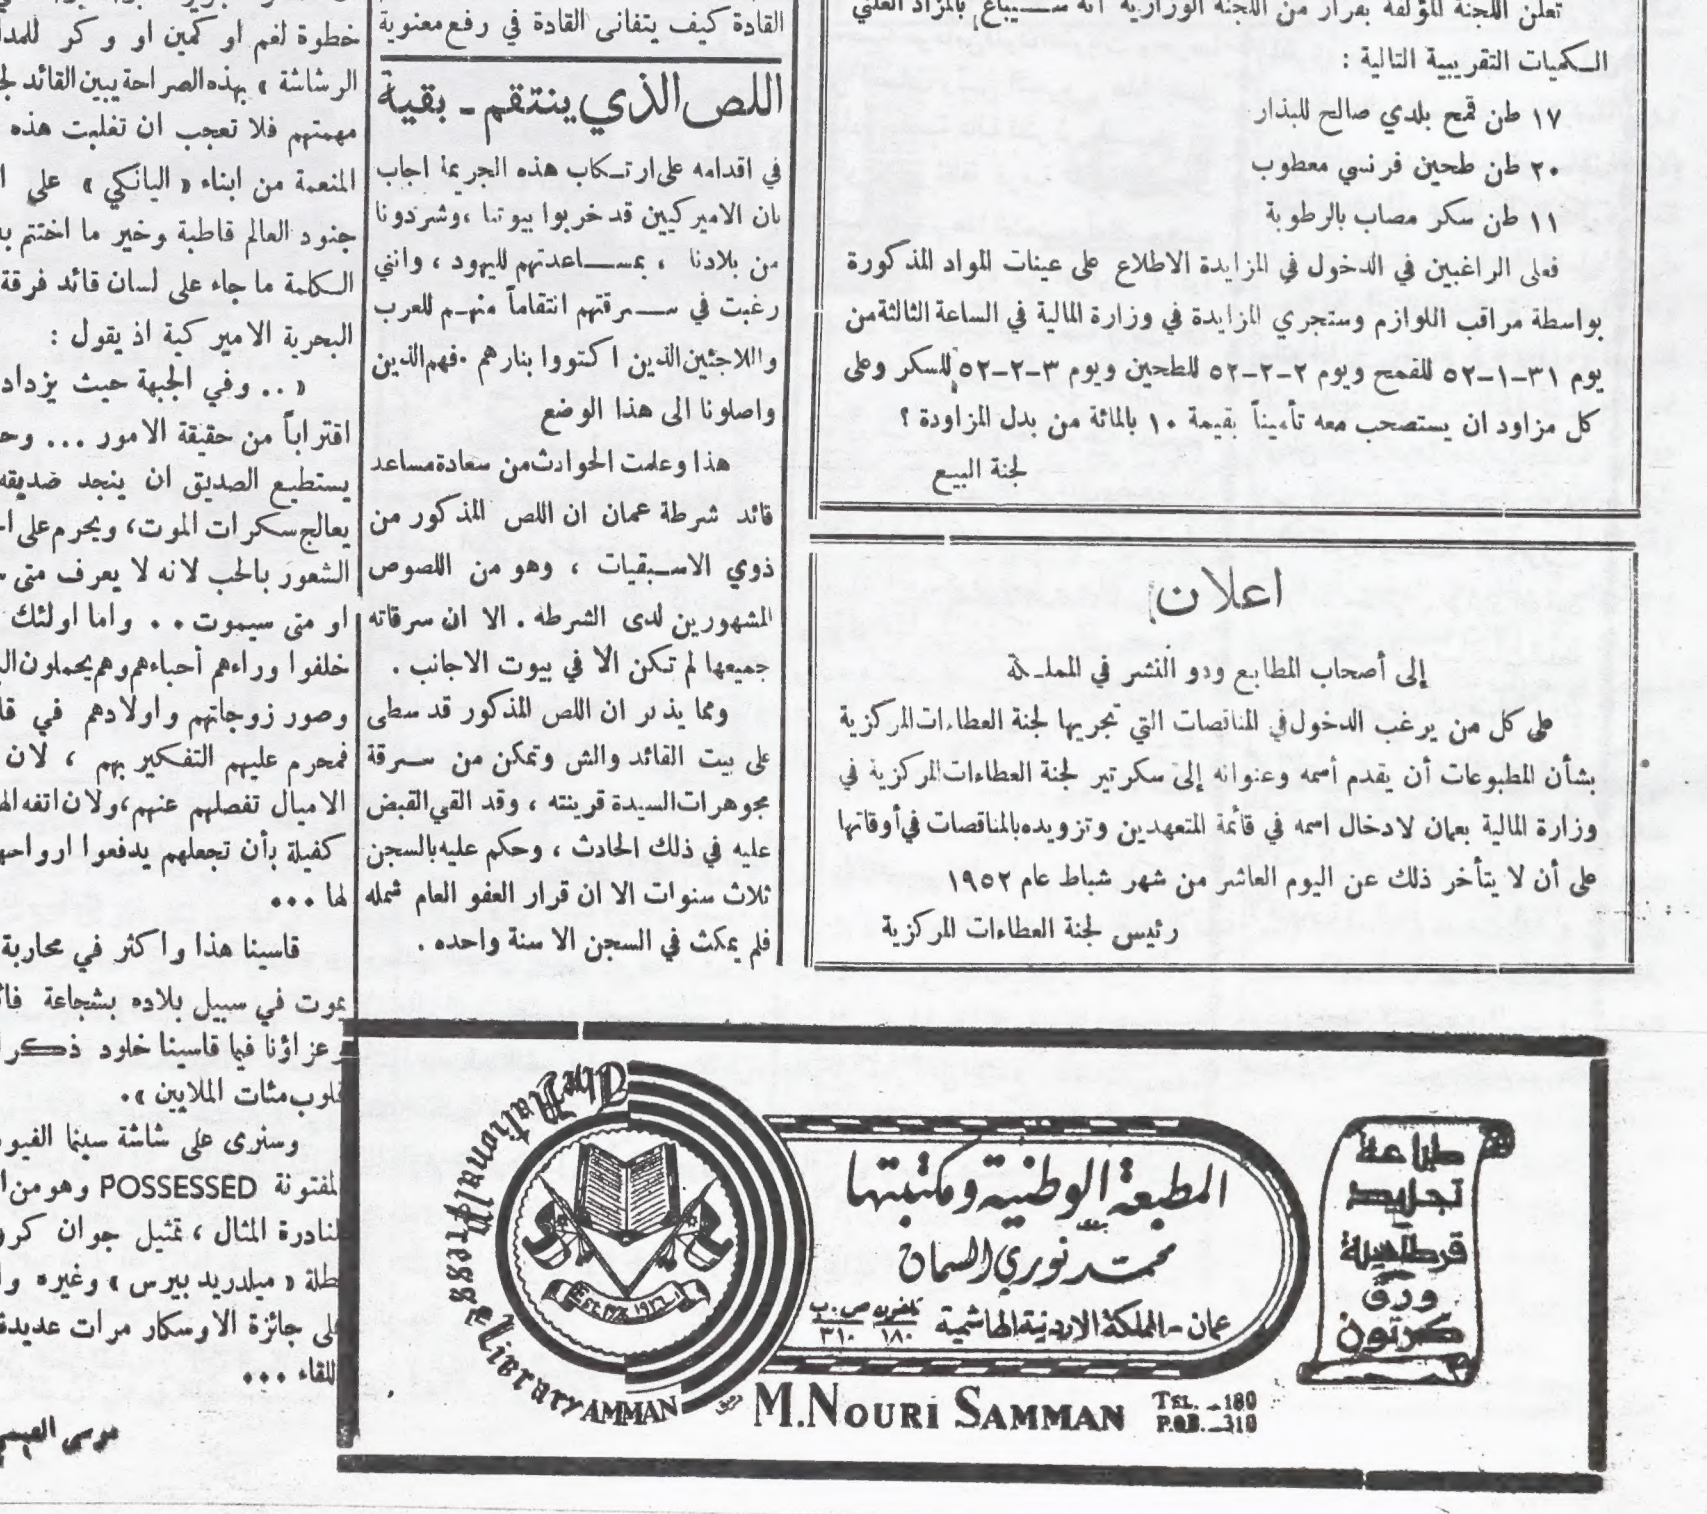 تعلن اللجنة المؤلفة بقرار من اللجنة الوزارية انه سيباع بالمزاد العلني
الكميات التقريبية التالية :
١٧ طن قمح بلدي صالح للبذار
٢٠ طن طحين فرنسي معطوب
١١ طن سكر مصاب بالرطوبة
فعلى الراغبين في الدخول في المزايدة الاطلاع على عينات المواد المذكورة
بواسطة مراقب اللوازم وستجري المزايدة في وزارة المالية في الساعة الثالثة من
يوم ٣١-١-٥٢ للقمح ويوم ٢-٢-٥٢ للطحين ويوم ٣-٢-٥٢ للسكر وعلى
كل مزاود ان يستصحب معه تأميناً بقيمة ١٠ بالمائة من بدل المزاودة ؟
لجنة البيع
اعلان
إلى أصحاب المطابع ودو النشر في المملكة
على كل من يرغب الدخول في المناقصات التي تجريها لجنة العطاءات المركزية
بشأن المطبوعات أن يقدم أسمه وعنوانه إلى سكرتير لجنة العطاءات المركزية في
وزارة المالية بعمان لادخال اسمه في قائمة المتعهدين وتزويده بالمناقصات في أوقاتها
على أن لا يتأخر ذلك عن اليوم العاشر من شهر شباط عام ١٩٥٢
رئيس لجنة العطاءات المركزية
القادة كيف يتفانى القادة في رفع معنوية
اللص الذي ينتقم ـ بقية
في اقدامه على ارتكاب هذه الجريمة اجاب
بان الاميركيين قد خربوا بيوتنا ،وشردونا
من بلادنا ، بمساعدتهم لليهود ، وانني
رغبت في سرقتهم انتقاماً منهم للعرب
واللاجئين الذين اكتووا بنارهم .فهم الذين
واصلونا الى هذا الوضع
هذا وعلمت الحوادث من سعادة مساعد
قائد شرطة عمان ان اللص المذكور من
ذوي الاسبقيات ، وهو من اللصوص
المشهورين لدى الشرطه . الا ان سرقاته
جميعها لم تكن الا في بيوت الاجانب .
ومما يذكر ان اللص المذكور قد سطى
على بيت القائد والش وتمكن من سرقة
مجوهرات السيدة قرينته ، وقد القي القبض
عليه في ذلك الحادث ، وحكم عليه بالسجن
ثلاث سنوات الا ان قرار العفو العام شمله
فلم يمكث في السجن الا سنة واحده .
خطوة لغم او كمين او وكر للمدا
الرشاشة » بهذه الصراحة يبين القائد
مهمتهم فلا تعجب ان تغلبت هذه
المنعمة من ابناء « اليانكي » على
جنود العالم قاطبة وخير ما اختتم
الكلمة ما جاء على لسان قائد فرقة
البحرية الاميركية اذ يقول :
« .. وفي الجبهة حيث يزداد
اقتراباً من حقيقة الامور ...
يستطيع الصديق ان ينجد صديقه
يعالج سكرات الموت، ويحرم على
الشعور بالحب لانه لا يعرف متى
او متى سيموت .. واما اولئك
خلفوا وراءهم أحباءهم وهم يحملون
وصور زوجاتهم واولادهم في
فمحرم عليهم التفكير بهم ، لان
الاميال تفصلهم عنهم،ولان اتفه
كفيلة بأن تجعلهم يدفعوا
لها ...
قاسينا هذا واكثر في محاربة
يموت في سبيل بلاده بشجاعة
وعزاؤنا فيما قاسينا خلود
قلوب مئات الملايين ».
وسنرى على شاشة سينما
المفتونة POSSESSED وهو من
النادرة المثال ، تمثيل جوان
بطلة « ميلدريد بيرس » وغيره
على جائزة الاوسكار مرات عديدة
اللقاء ...
موسى
طباعة
تجليد
قرطاسية
ورق
كرتون
المطبعة الوطنية ومكتبتها
محمد نوري السمان
عمان - المملكة الاردنية الهاشمية
تلفون ١٨٠
ص.ب ٣١٠
The National Press & Library AMMAN
M. NOURI SAMMAN
TEL. 180
P.O.B. 310